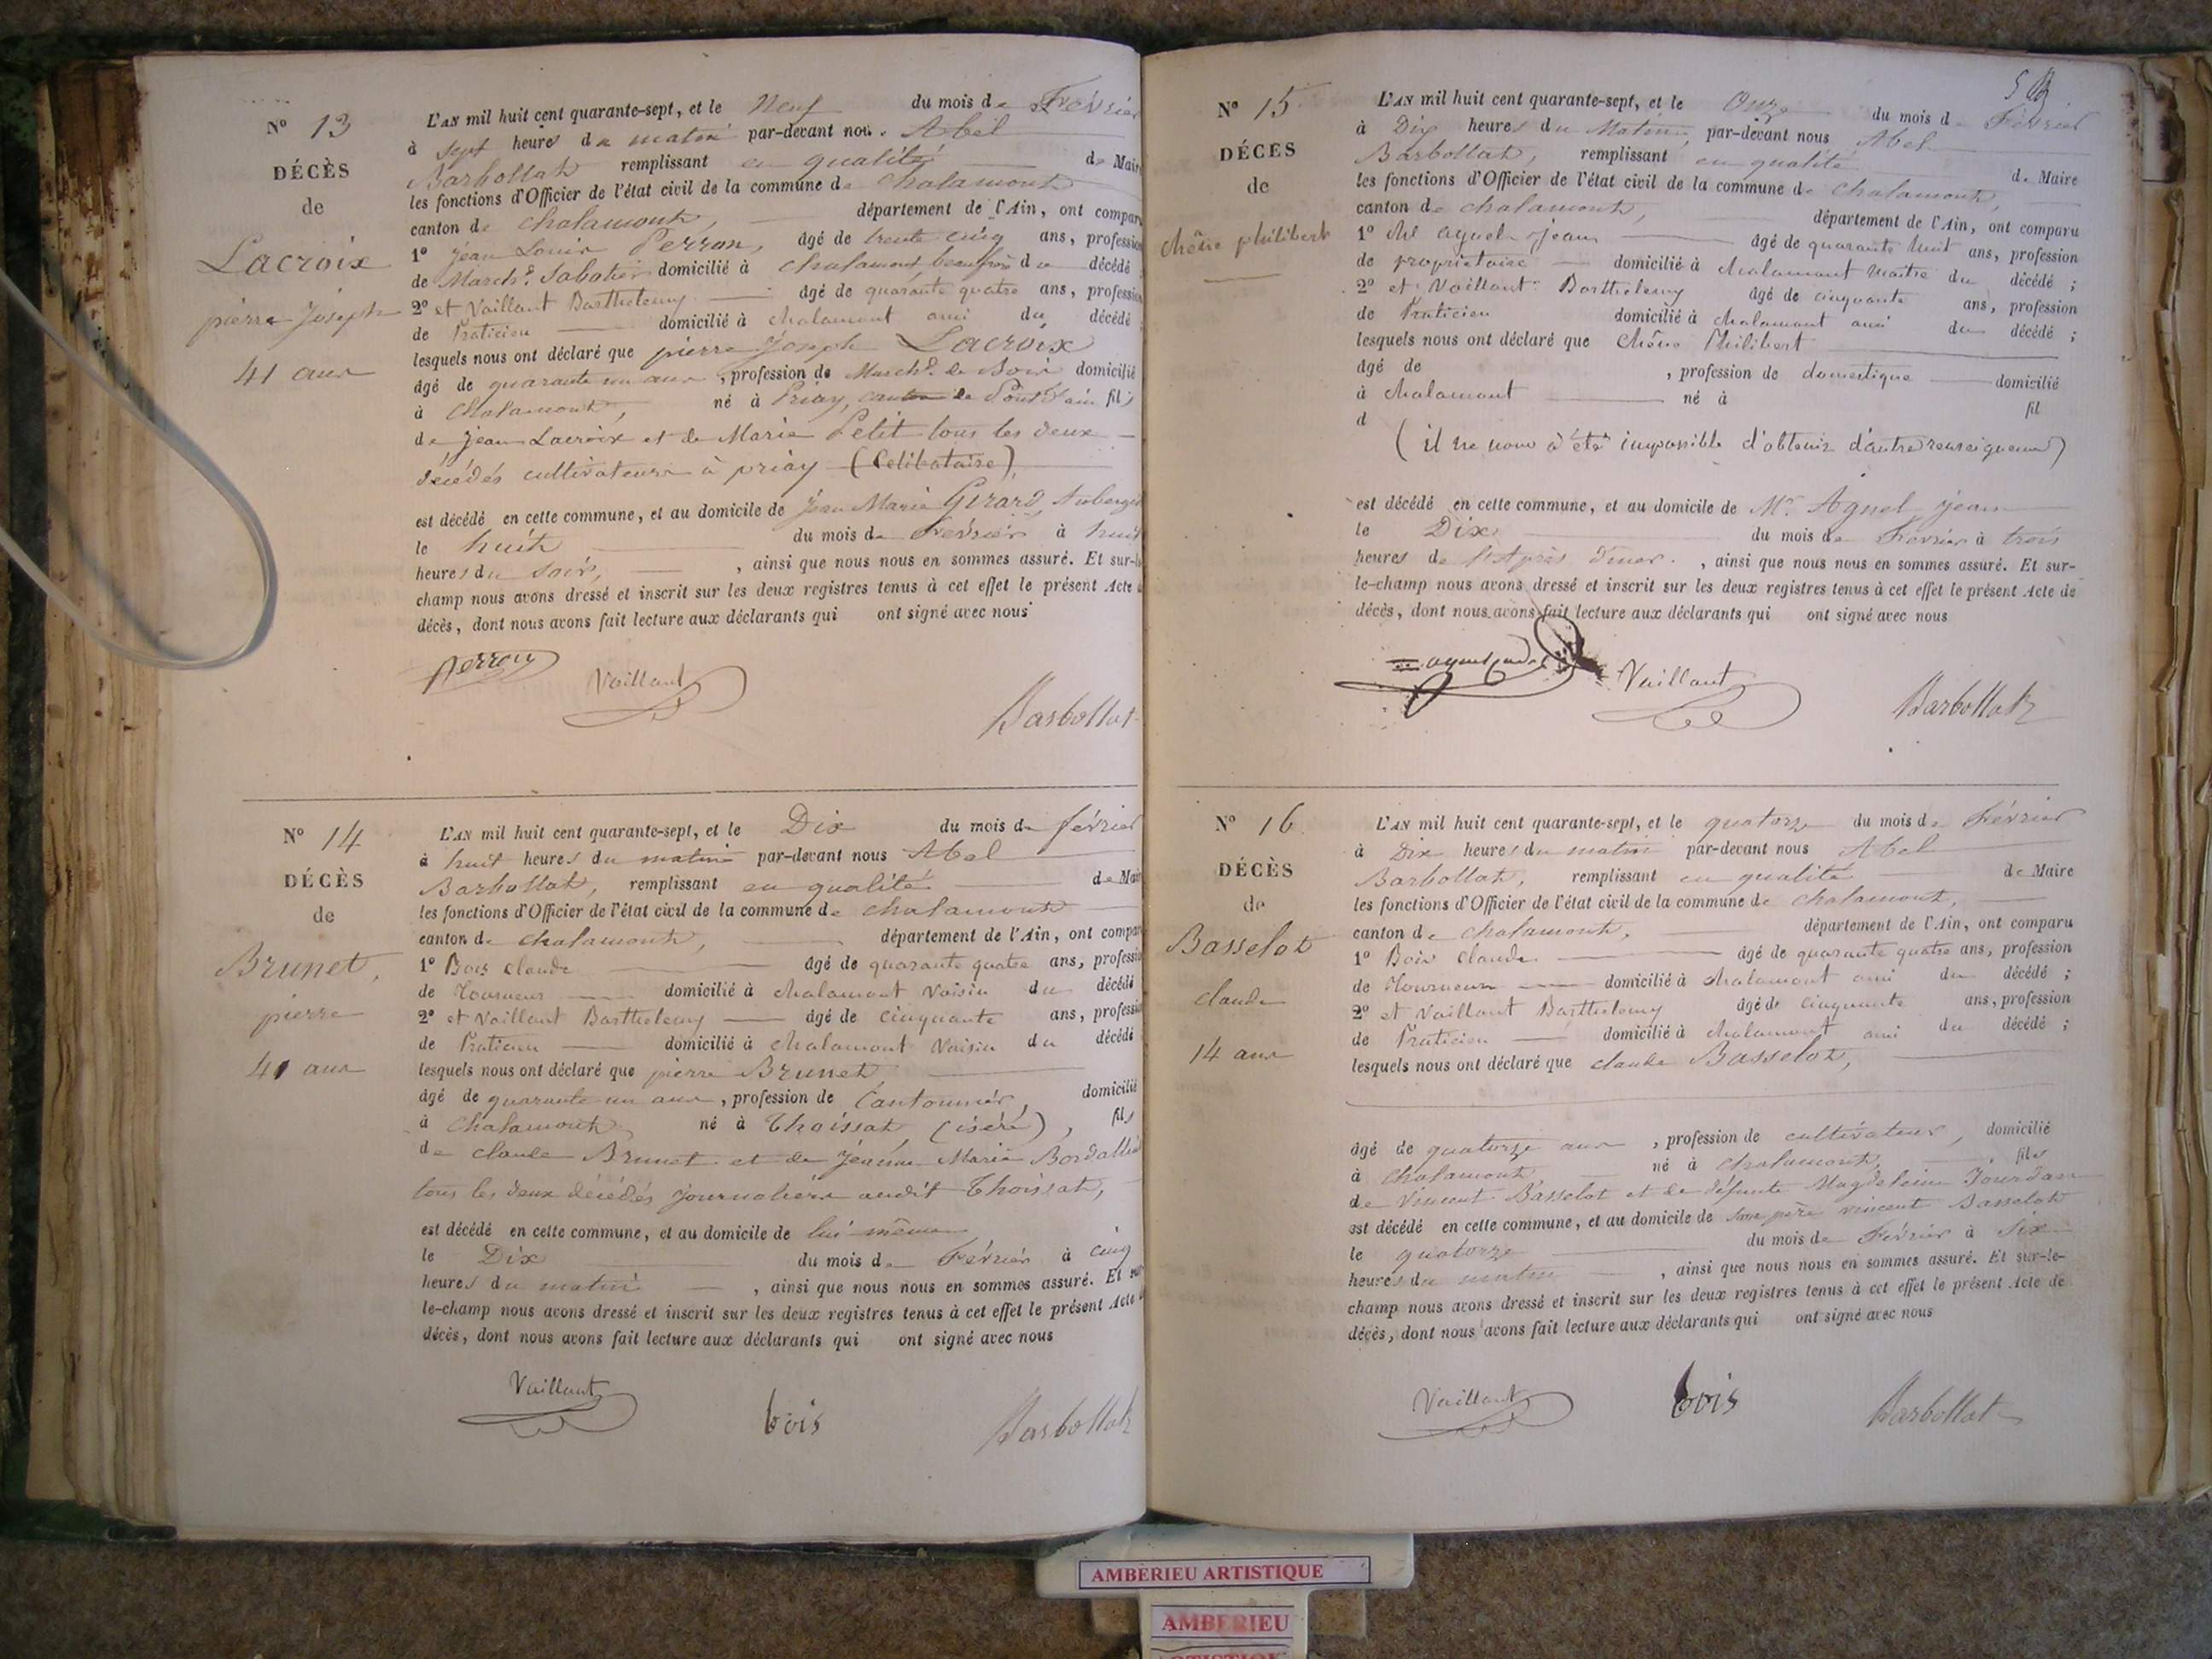 N° 13
DÉCÈS
de
Lacroix
pierre Joseph
41 ans
L'AN mil huit cent quarante-sept, et le Neuf du mois de Février
à sept heures du matin par-devant nous Abel
Barbollat remplissant en qualité de Maire
les fonctions d'Officier de l'état civil de la commune de chalamont
canton de chalamont, département de l'Ain, ont comparu
1° Jean Louis Perron, âgé de trente cinq ans, profession
de Marchd. Sabotier domicilié à chalamont beaufrère du décédé
2° et Vaillant Barthelemy âgé de quarante quatre ans, profession
de Praticien domicilié à chalamont ami du décédé
lesquels nous ont déclaré que pierre Joseph Lacroix
âgé de quarante un ans, profession de Marchd. de domicilié
à Chalamont, né à Priay, canton de Pont d'ain fils
de Jean Lacroix et de Marie Petit tous les deux
décédés cultivateurs à priay (Celibataire),
est décédé en cette commune, et au domicile de Jean Marie Girard, Auberge
le huit du mois de Février à huit
heures du Soir, , ainsi que nous nous en sommes assuré. Et sur-le
champ nous avons dressé et inscrit sur les deux registres tenus à cet effet le présent Acte d
décès, dont nous avons fait lecture aux déclarants qui ont signé avec nous
perron Vaillant Barbollat
N° 14
DÉCÈS
de
Brunet,
pierre
41 ans
L'AN mil huit cent quarante-sept, et le Dix du mois de février
à huit heures du matin par-devant nous Abel
Barbollat, remplissant en qualité de Maire
les fonctions d'Officier de l'état civil de la commune de chalamont
canton de chalamont, département de l'Ain, ont comparu
1° Bois claude âgé de quarante quatre ans, profession
de Tourneur domicilié à chalamont Voisin du décédé
2° et Vaillant Barthelemy âgé de cinquante ans, profession
de Praticien domicilié à chalamont Voisin du décédé
lesquels nous ont déclaré que pierre Brunet
âgé de quarante un ans, profession de Cantonnier, domicilié
à Chalamont, né à Thoissat (isère), fils
de claude Brunet et de Jeanne Marie Bordallie
tous les deux décédés journaliers audit Thoissat,
est décédé en cette commune, et au domicile de lui même
le Dix du mois de Février à cinq
heures du matin , ainsi que nous nous en sommes assuré. Et sur
le-champ nous avons dressé et inscrit sur les deux registres tenus à cet effet le présent Acte d
décès, dont nous avons fait lecture aux déclarants qui ont signé avec nous
Vaillant bois Barbollat
N° 15
DÉCÈS
de
chêne philibert
L'AN mil huit cent quarante-sept, et le Onze du mois de Février
à Dix heures du Matin, par-devant nous Abel
Barbollat, remplissant en qualité de Maire
les fonctions d'Officier de l'état civil de la commune de chalamont,
canton de chalamont, département de l'Ain, ont comparu
1° agnel jean âgé de quarante huit ans, profession
de propriétaire domicilié à chalamont maitre du décédé ;
2° et Vaillant Barthelemy âgé de cinquante ans, profession
de Praticien domicilié à chalamont ami du décédé ;
lesquels nous ont déclaré que chêne Philibert
âgé de , profession de domestique domicilié
à chalamont né à fil
d
(il ne nous à été impossible d'obtenir d'autre renseignement)
est décédé en cette commune, et au domicile de Mr. Agnel jean
le Dix du mois de Février à trois
heures de l'Après diner. , ainsi que nous nous en sommes assuré. Et sur-
le-champ nous avons dressé et inscrit sur les deux registres tenus à cet effet le présent Acte de
décès, dont nous avons fait lecture aux déclarants qui ont signé avec nous
Vaillant Barbollat
N° 16
DÉCÈS
de
Basselot
claude
14 ans
L'AN mil huit cent quarante-sept, et le quatorze du mois de Février
à Dix heures du matin par-devant nous Abel
Barbollat, remplissant en qualité de Maire
les fonctions d'Officier de l'état civil de la commune de chalamont,
canton de chalamont, département de l'Ain, ont comparu
1° Bois claude âgé de quarante quatre ans, profession
de Tourneur domicilié à chalamont ami du décédé ;
2° et Vaillant Barthelemy âgé de cinquante ans, profession
de Praticien domicilié à chalamont ami du décédé ;
lesquels nous ont déclaré que claude Basselot,
âgé de quatorze ans , profession de cultivateur, domicilié
à chalamont né à chalamont, fils
de Vincent Basselot et de défunte Magdeleine Jourdan
est décédé en cette commune, et au domicile de son père vincent Basselot
le quatorze du mois de Février à Six
heures du matin , ainsi que nous nous en sommes assuré. Et sur-le-
champ nous avons dressé et inscrit sur les deux registres tenus à cet effet le présent Acte de
décès, dont nous avons fait lecture aux déclarants qui ont signé avec nous
Vaillant bois Barbollat
AMBERIEU ARTISTIQUE
AMBERIEU
ARTISTIQUE